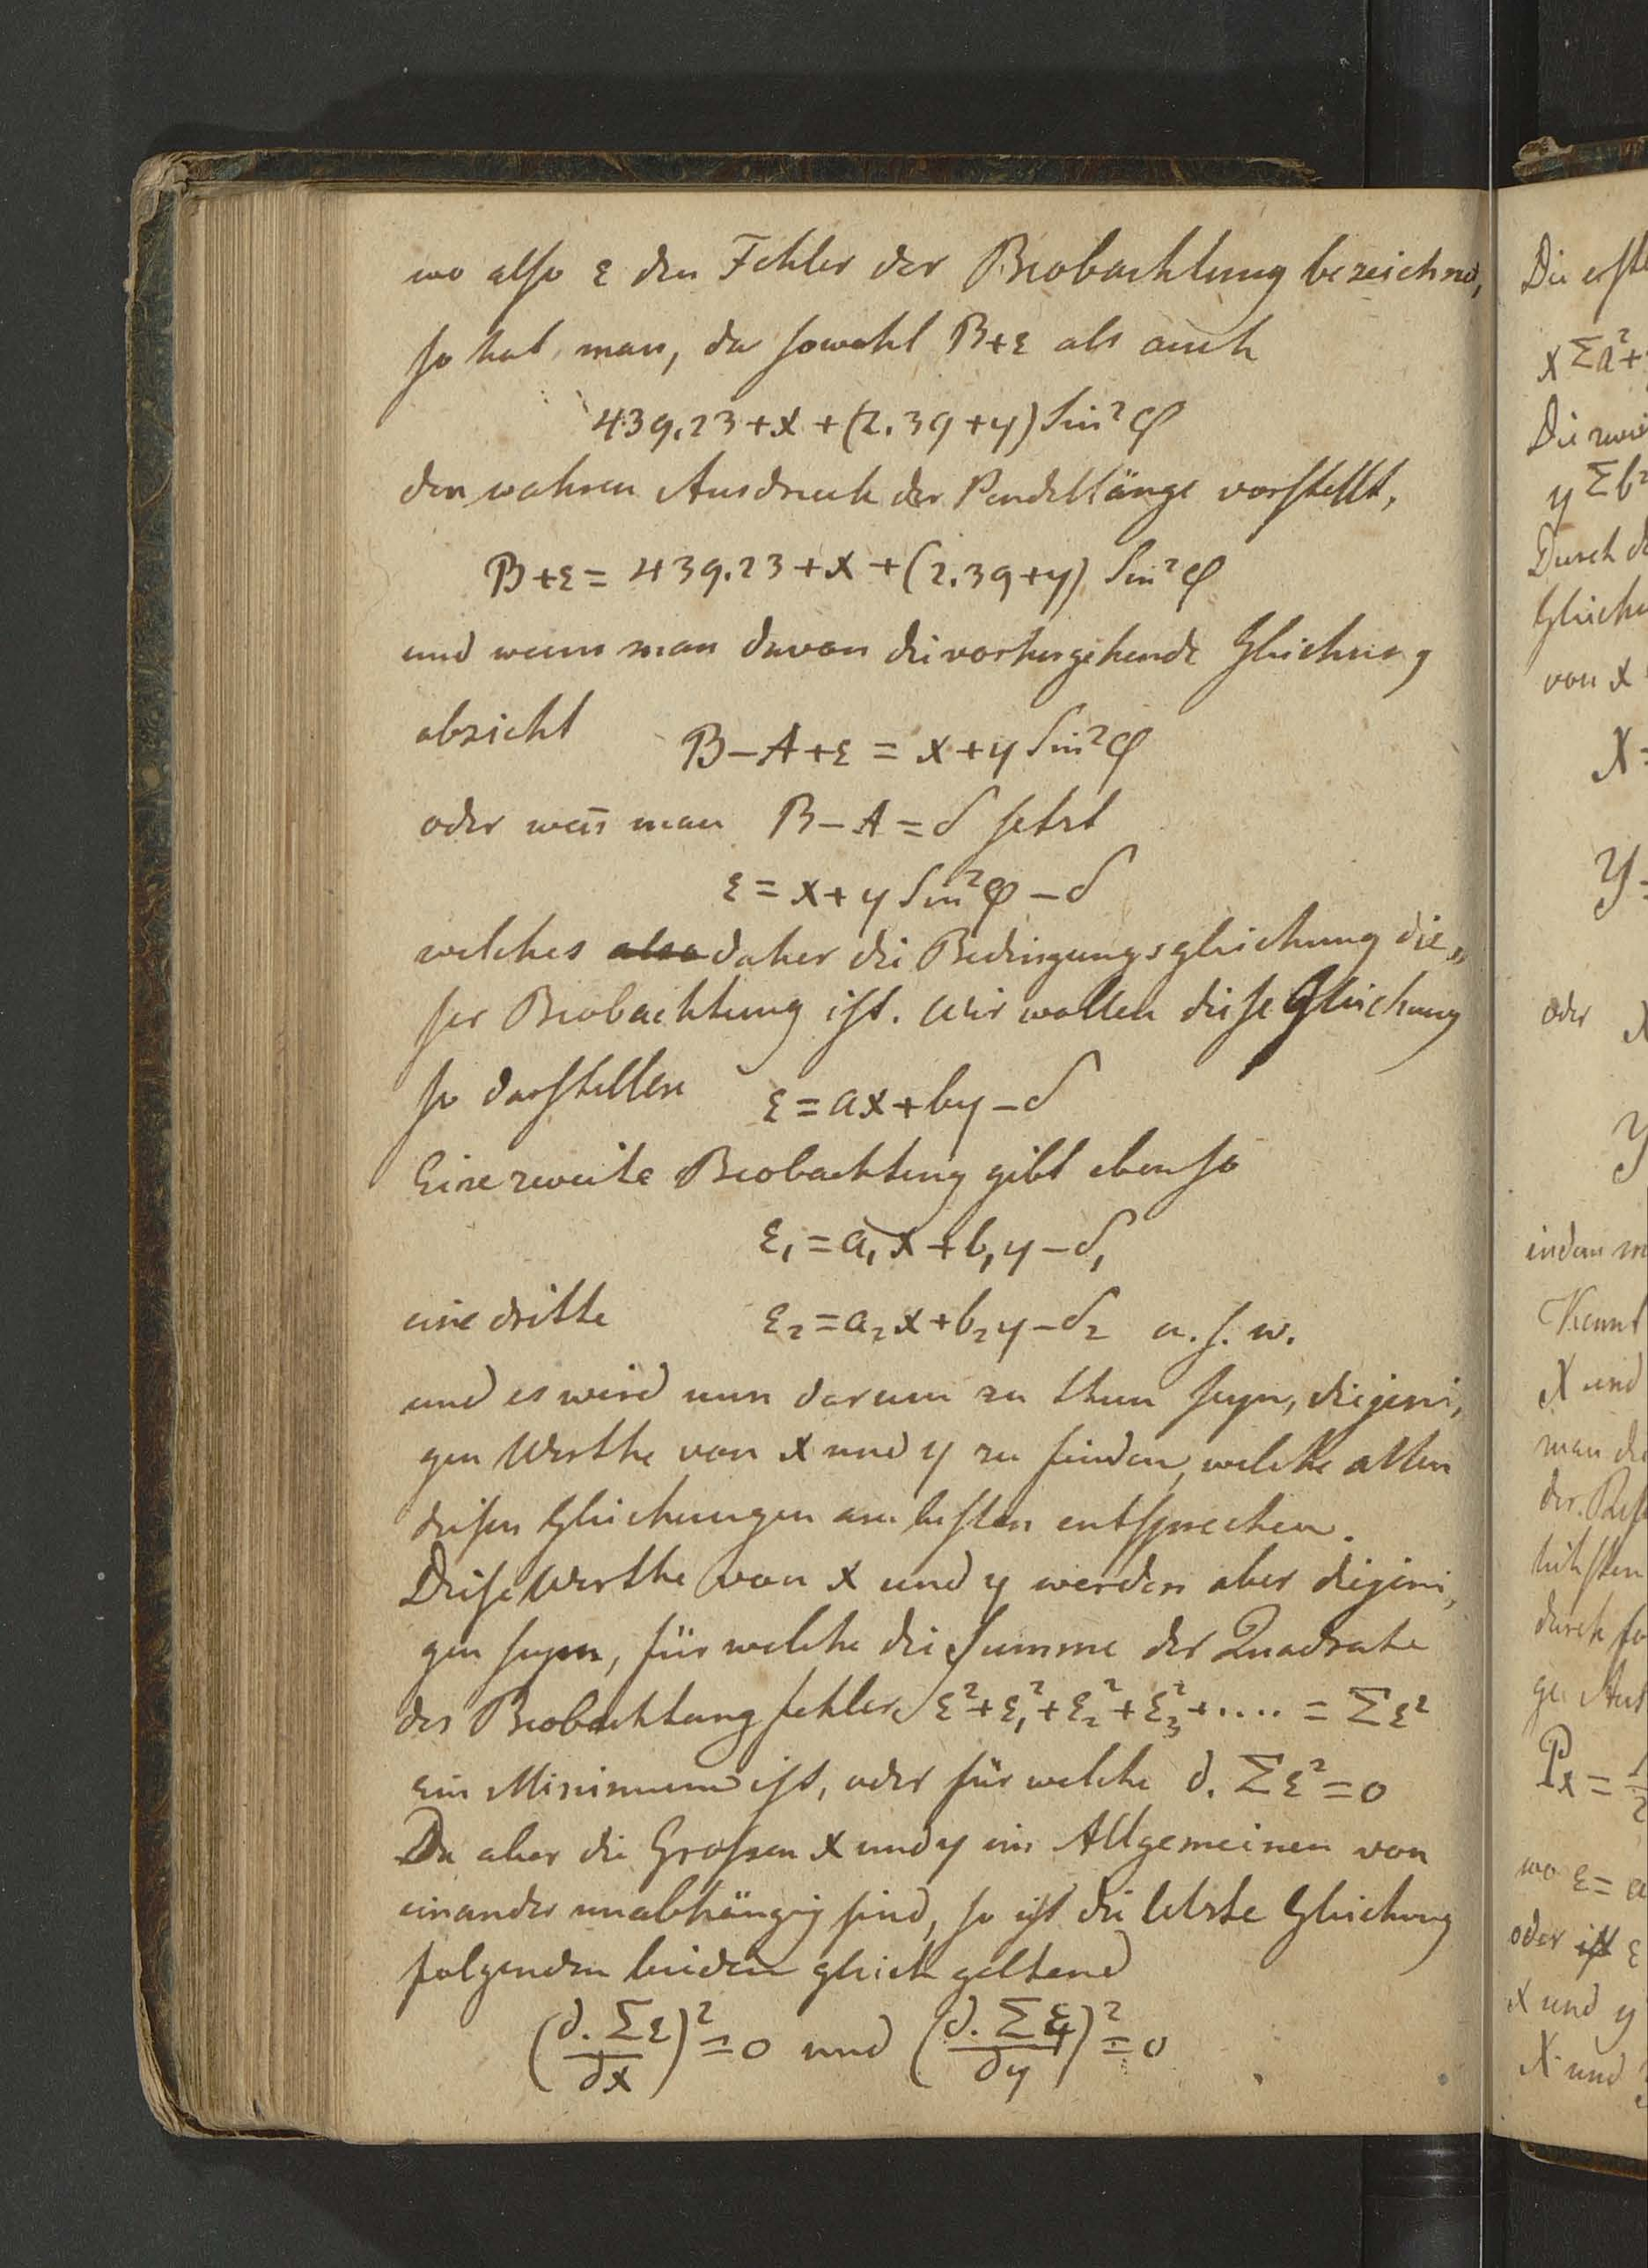 wo also ε den Fehler der Beobachtung bezeichnet,
so hat man, da sowohl B+ε als auch
439.23+x+(2.39+y) Sin²φ
den wahren Ausdruck der Pendellänge vorstellt,
B+ε = 439.23+x+(2.39+y) Sin²φ
und wenn man davon die vorhergehende Gleichung
abzieht B–A+ε = x+y Sin²φ
oder wen̄ man B–A=δ setzt
ε = x+y Sin²φ – δ
welches also daher die Bedingungsgleichung die„
ser Beobachtung ist. Wir wollen diese Gleichung
so darstellen ε = ax+by–δ
Eine zweite Beobachtung gibt ebenso
ε₁=a₁x+b₁y–δ₁
eine dritte ε₂=a₂x+b₂y–δ₂ u. s. w.
und es wird nun darum zu thun seyn, diejeni,
gen Werthe von x und y zu finden, welche allen
diesen Gleichungen am besten entsprechen.
Diese Werthe von x und y werden aber diejeni,
gen seyn, für welche die Summe der Quadrate
der Beobachtungsfehler ε²+ε₁²+ε₂²+ε₃²+.... = Σε²
ein Minimum ist, oder für welche d. Σε²=0
Da aber die Grossen x und y im Allgemeinen von
einander unabhängig sind, so ist die letzte Gleichung
folgenden beiden gleich geltend
(d. Σε/dx)²=0 und (d. Σε/dy)²=0
Die erste
xΣa²+
yΣb²
Durch d
Gleichu
von x
X=
Y=
oder
y
indem m
Kennt
X und
man di
durch fo
Px = 1/2
wo ε= a
oder ist ε
x und y
X und